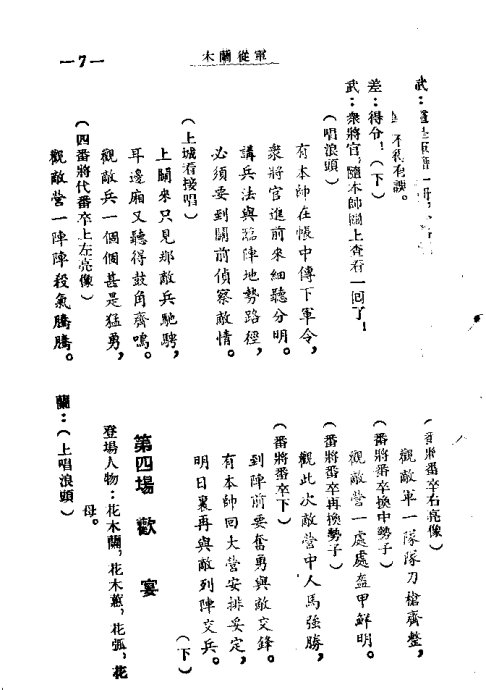 木蘭從軍
—7—
武：
不得有誤。
差：得令！（下）
武：衆將官，隨本帥關上查看一回了！
（唱浪頭）
有本帥在帳中傳下軍令，
衆將官進前來細聽分明。
講兵法與臨陣地勢路徑，
必須要到關前偵察敵情。
（上城看接唱）
上關來只見那敵兵馳騁，
耳邊廂又聽得鼓角齊鳴。
觀敵兵一個個甚是猛勇，
（四番將代番卒上左亮像）
觀敵營一陣陣殺氣騰騰。
（番將番卒右亮像）
觀敵軍一隊隊刀槍齊整，
（番將番卒換中勢子）
觀敵營一處處盔甲鮮明。
（番將番卒再換勢子）
觀此次敵營中人馬強勝，
（番將番卒下）
到陣前要奮勇與敵交鋒。
有本帥回大營安排妥定，
明日裏再與敵列陣交兵。
（下）
第四場 歡宴
登場人物：花木蘭，花木蕙，花弧，花
母。
蘭：（上唱浪頭）